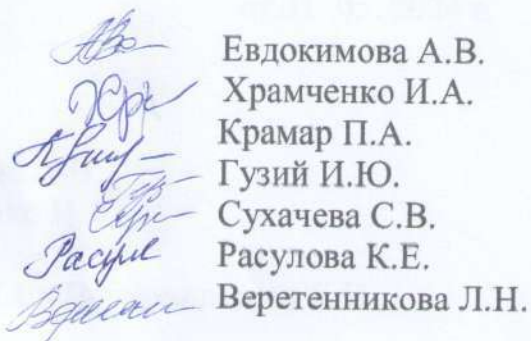 Евдокимова А.В.
Храмченко И.А.
Крамар П.А.
Гузий И.Ю.
Сухачева С.В.
Расулова К.Е.
Веретенникова Л.Н.